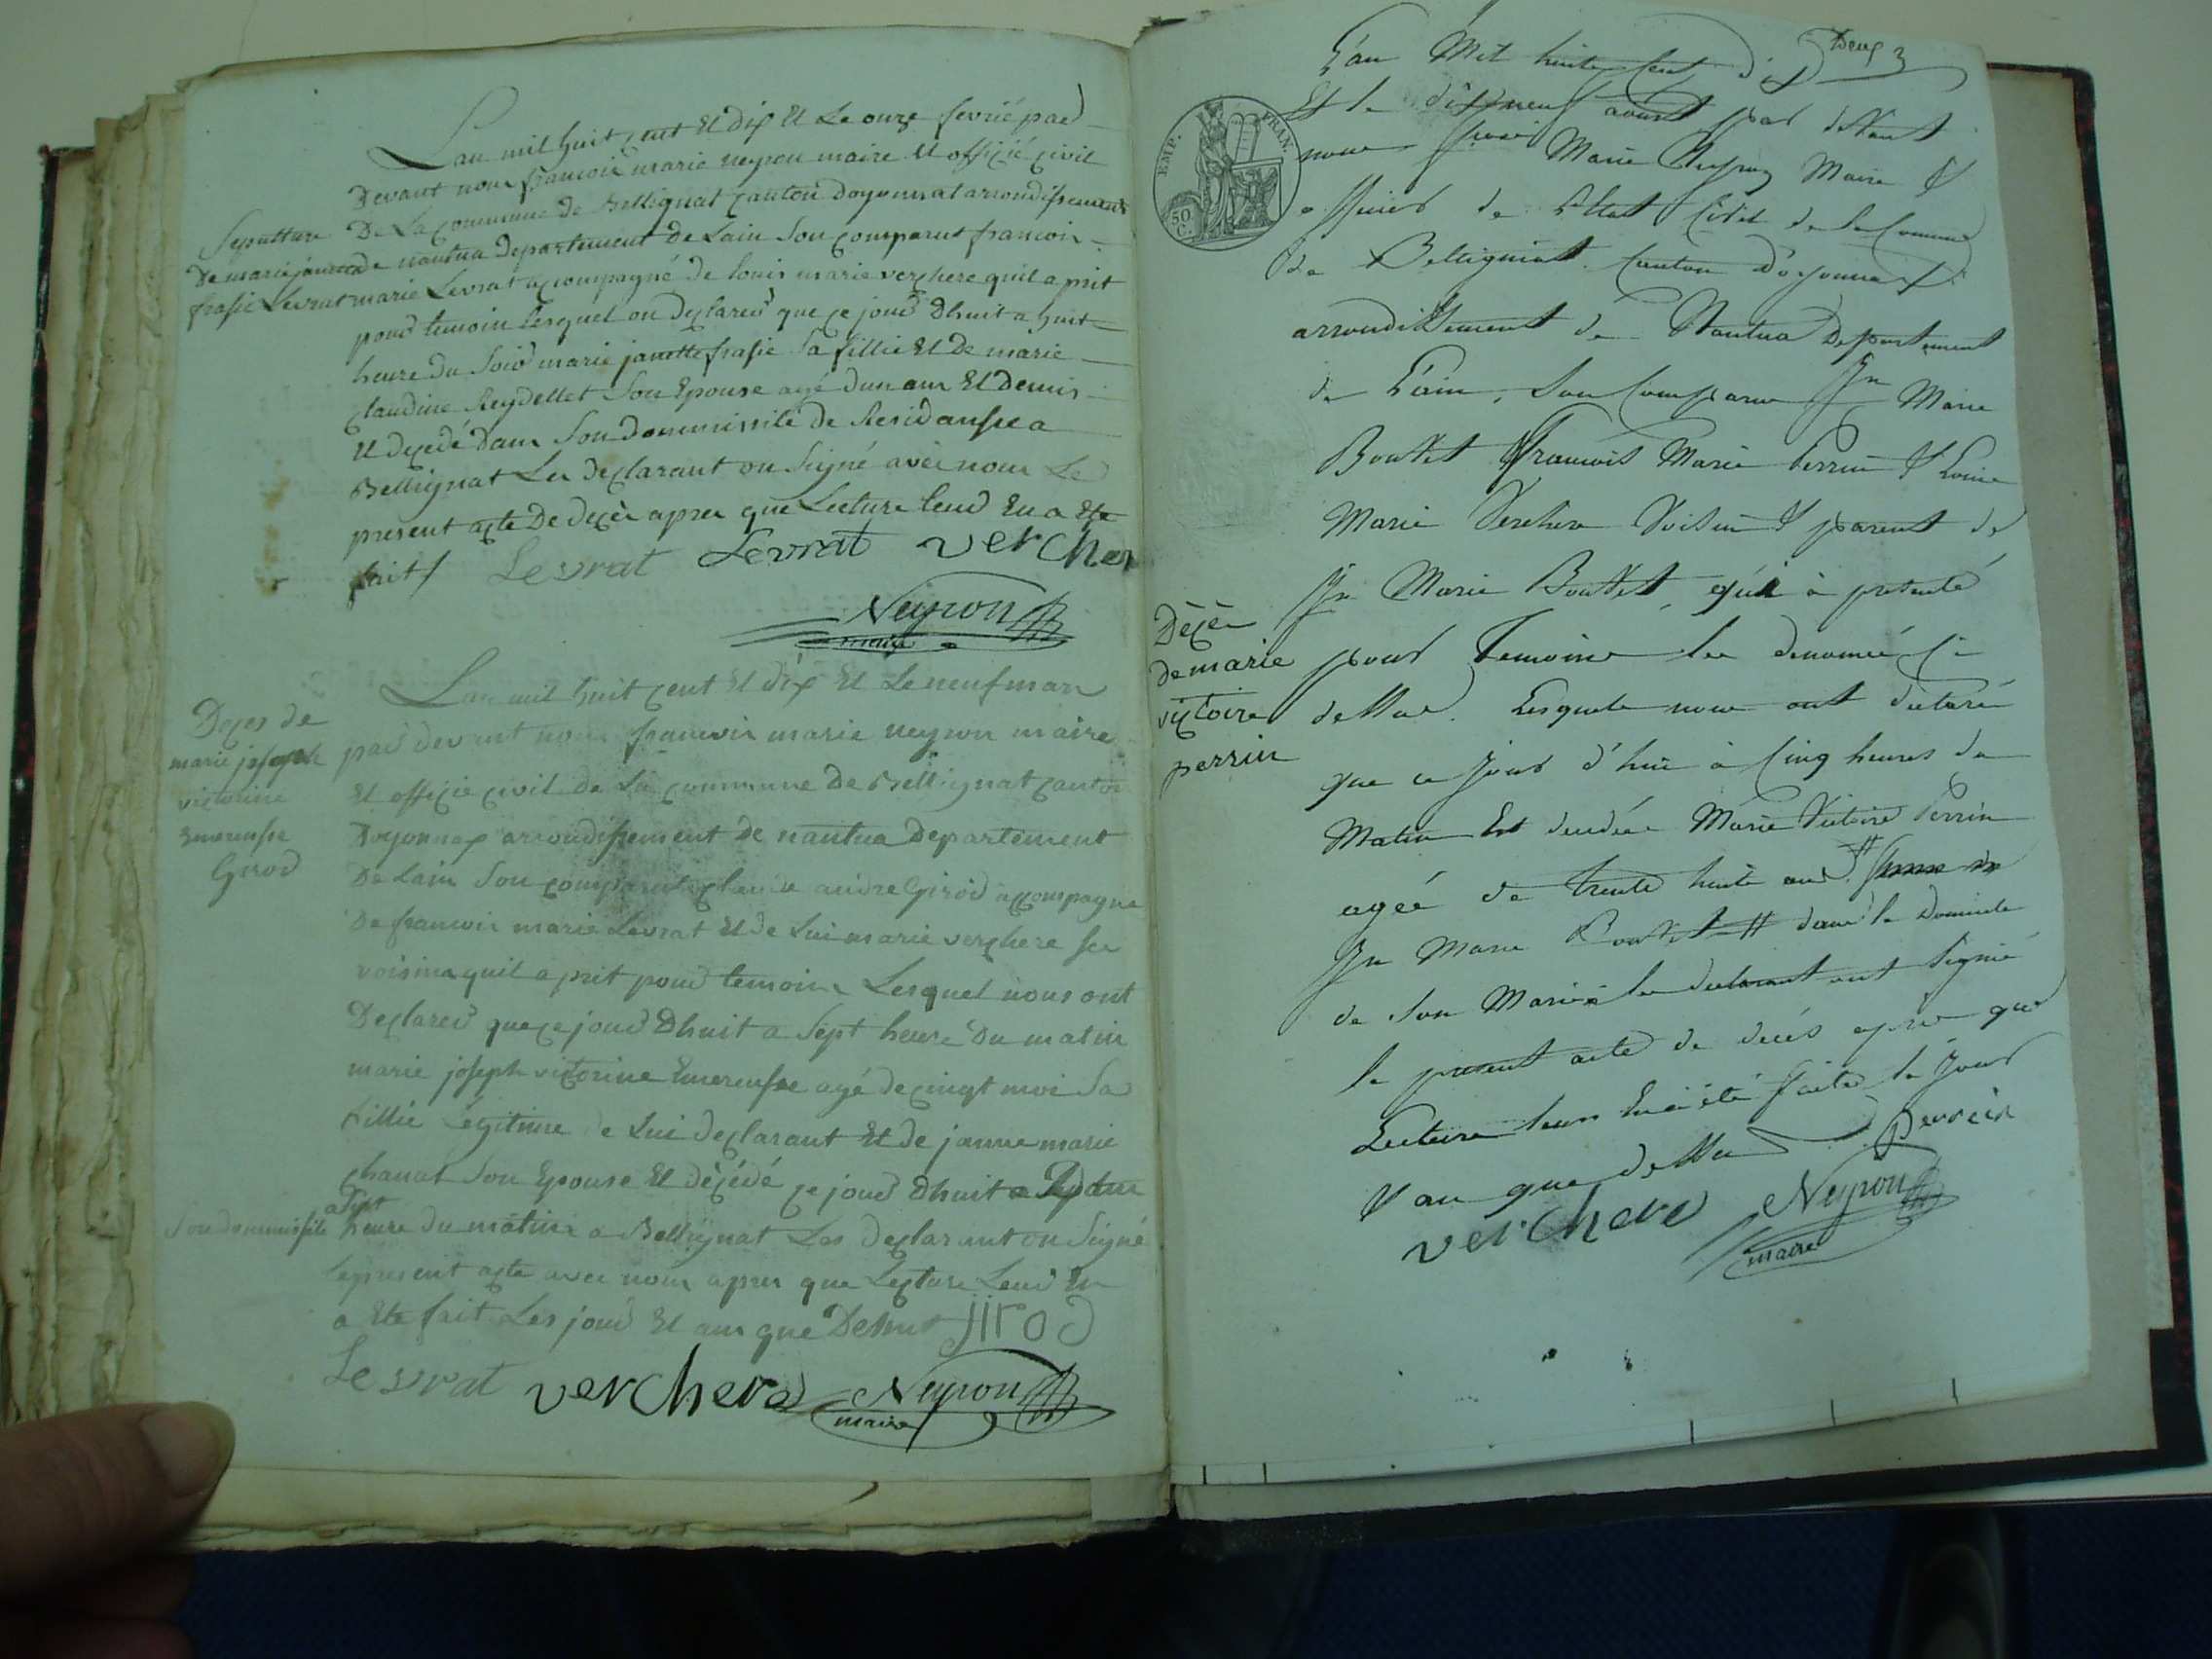 Lan mil huit cent Et dix Et Le onze fevrié par
Devant nous francois marie neyron maire Et officié civil
De La commune de Bellignat canton doyonnat arrondissement
de nantua Departement de Lain Son comparut francois
marie Levrat accompagné de louis marie verchere quil a prit
pour temoin Lesquel on declarer que ce jour Dhuit a huit
heure du Soir marie janette frasie Sa fillie Et De marie
claudine Reydellet Son Epouse agé dun an Et Demis
Et decedé Dans Son dommissile de Residansse a
Bellignat Les declarant on Signé avec nous Le
present acte De decès apres que Lecture leur En a Ete
fait / Levrat Levrat vercher
Neyron
maire
Sepulture
De marie janette
frasie Levrat
Lan mil huit cent Et dix Et Le neuf mars
par devant nous francois marie neyron maire
Et officié civil de La commune De Bellignat canton
Doyonnax arrondissement de nantua Departement
De Lain Son comparut claude andre Girod accompagné
De francois marie Levrat Et de Lui marie verchere Ses
voisins quil a prit pour temoin Lesquel nous ont
Declarer que ce jour Dhuit a Sept heure Du matin
marie joseph victorine Emerensse agé de cinqt moi Sa
fillie Legitime de Lui declarant Et de janne marie
chanat Son Epouse Et décédé ce jour dhuit a
a Sept
Son dommissile heure du matin a Bellignat Les declarant on Signé
le present acte avec nous apres que Lecture Leur En
a Ete fait Les jour Et ans que Dessus jirod
Levrat verchere Neyron
maire
Deces de
marie joseph
victorine
Emerensse
Girod
Deux 2
L'an Mil huit Cent dix
Et le dixneuf aoust par devant
nous francois Marie Neyron Maire &
officier de l'Etat Civil de la Commune
de Bellignat Canton D'oyonnax
arrondissement de Nantua Departement
de L'ain, Son Comparu Jn Marie
Bouvet François Marie Perrin & Louis
Marie Verchere Voisin & parent de
Jn Marie Bouvet, qui à présenté
pour Temoins les denomées ci
dessus. Lesquels nous ont déclaré
que ce jour d'hui à Cinq heures du
Matin Est décédée Marie Victoire Perrin
agée de trente huit ans #
Jn Marie Bouvet # dans le Domicile
de Son Mari & les declarant ont Signé
le present acte de decés apres que
Lecture leurs En à été faite le Jour
& an que dessus Perrein
verchere Neyron
maire
Décès
de marie
victoire
perrin
EMP. FRAN.
50 C.